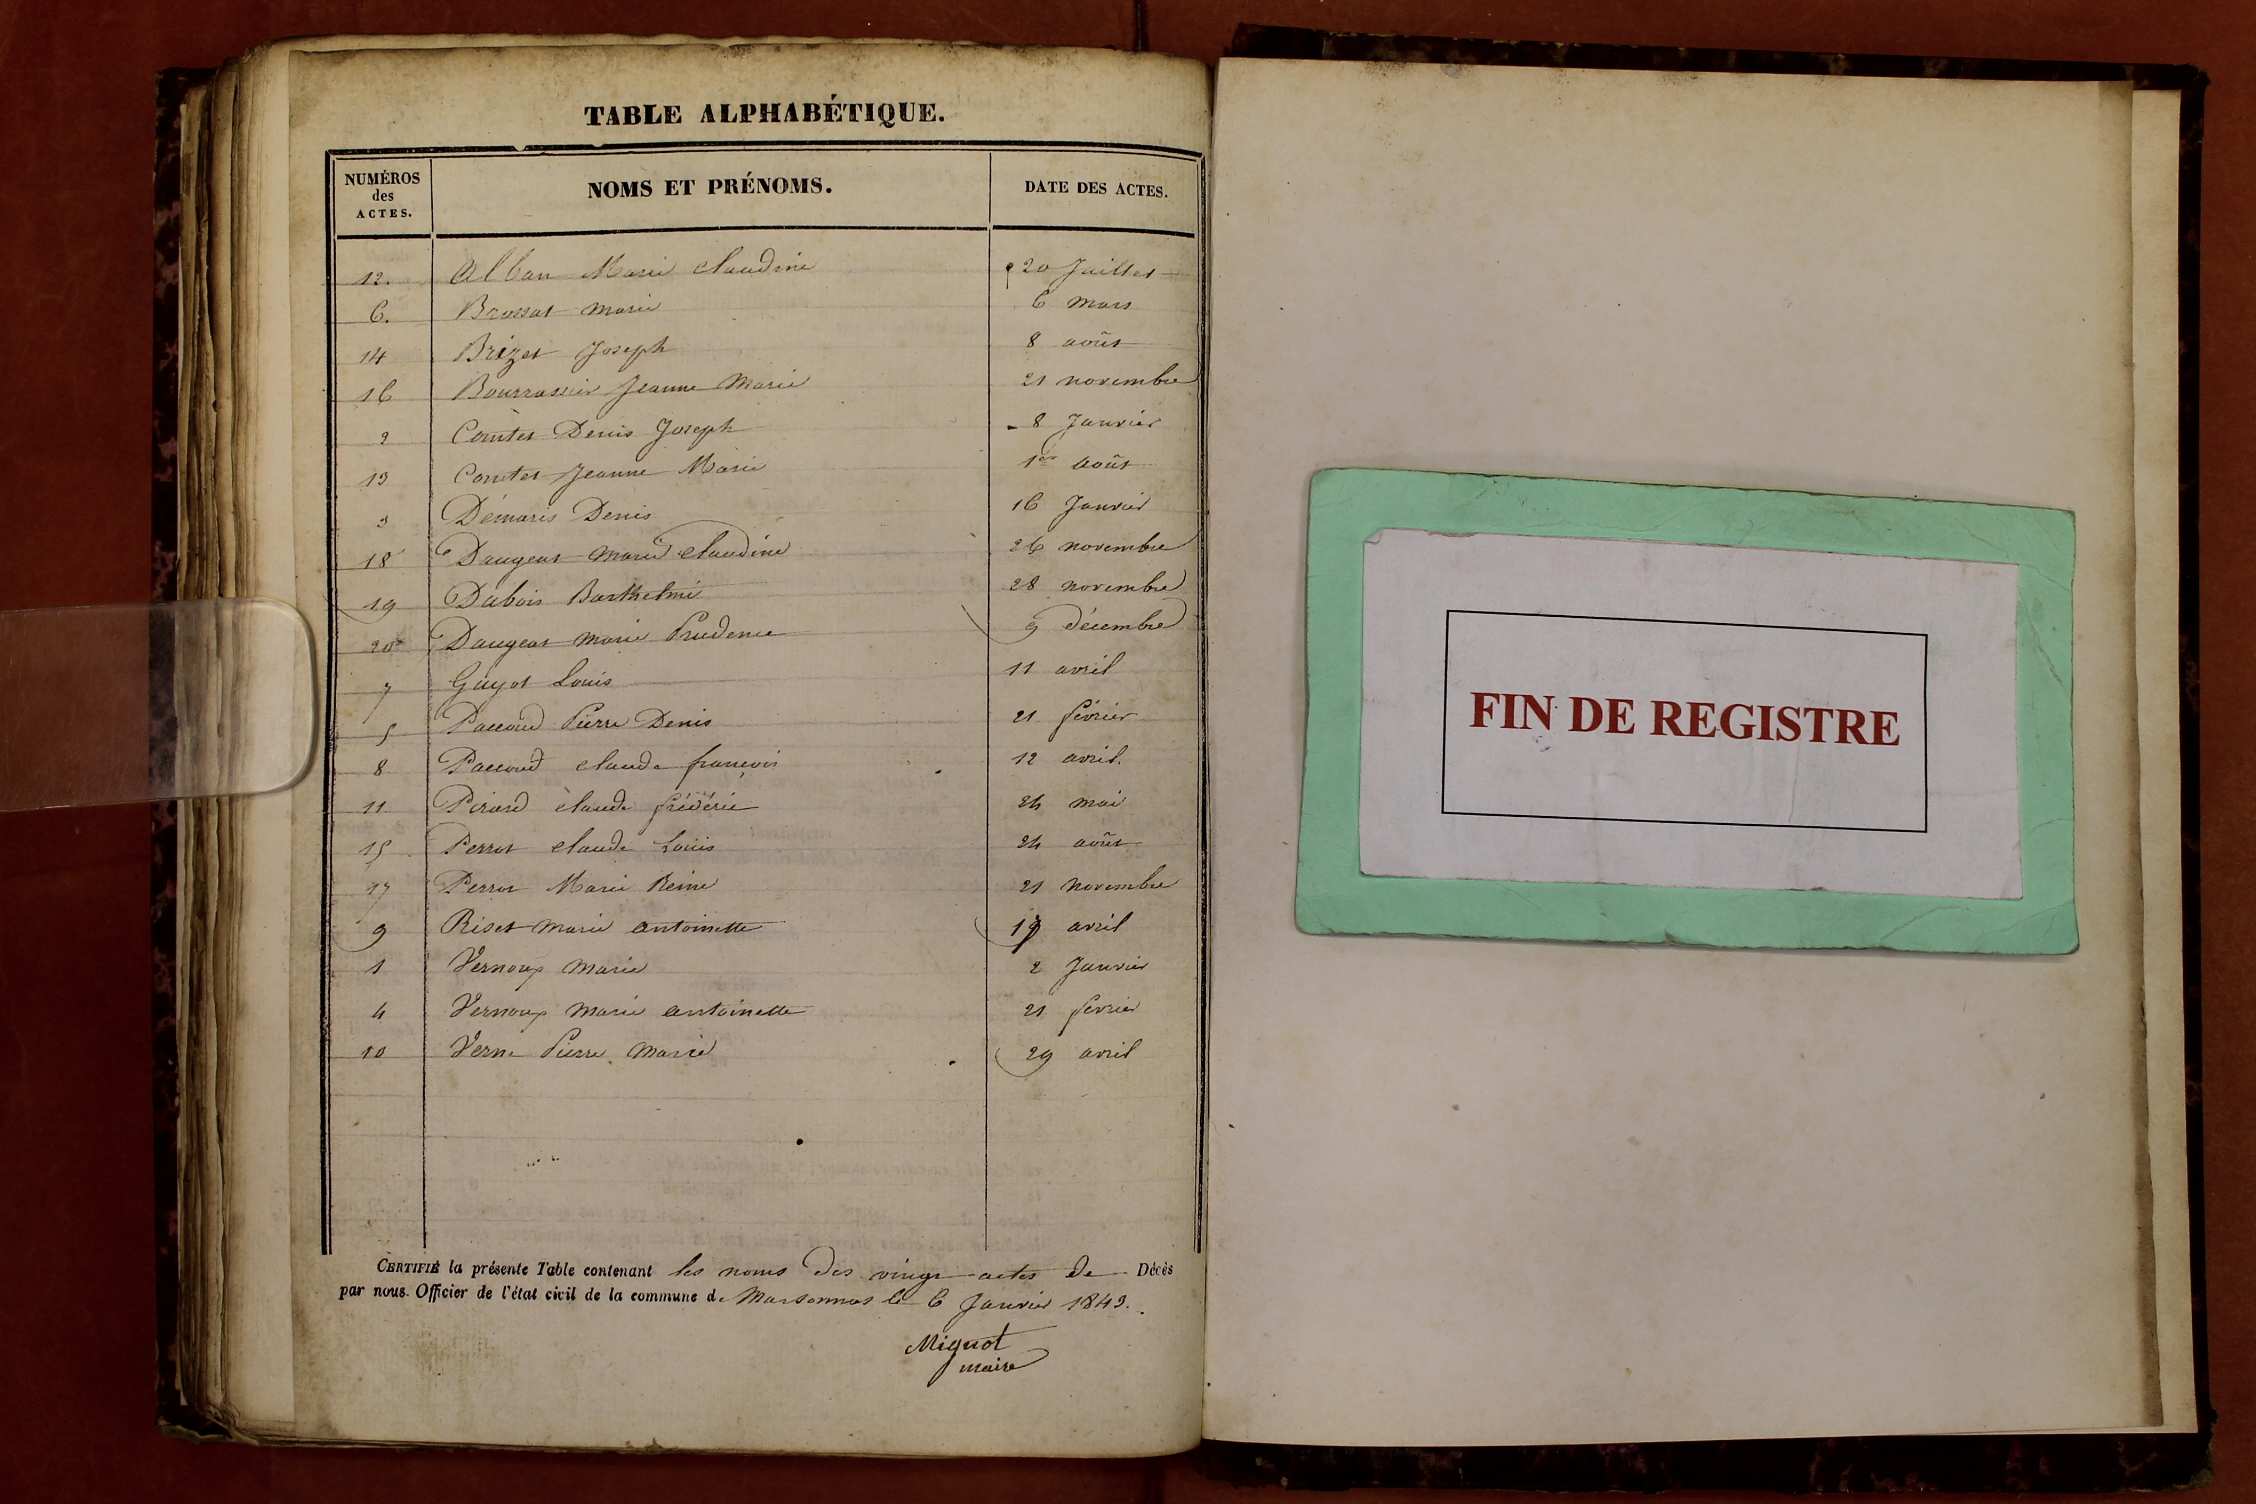 TABLE ALPHABÉTIQUE.
NUMÉROS des ACTES. NOMS ET PRÉNOMS. DATE DES ACTES.
12. Alban Marie Claudine 20 Juillet
6. Brossat marie 6 mars
14 Brizet Joseph 8 août
16 Bourrassier Jeanne Marie 21 novembre
2 Comtet Denis Joseph 8 Janvier
13 Comtet Jeanne Marie 1er août
3 Démaris Denis 16 Janvier
18 Daugeat marie claudine 26 novembre
19 Dubois Barthelmi 28 novembre
20 Daugeat marie Prudence 9 décembre
7 Guyot Louis 11 avril
5 Paccoud Pierre Denis 21 février
8 Paccoud claude françois 12 avril.
11 claude frédéric 24 mai
15 Perrot claude Louis 24 août
17 Perrot Marie Reine 21 Novembre
9 Riset marie antoinette avril
1 Vernoux Marie 2 Janvier
4 Vernoux marie antoinette 21 fevrier
10 Verne Pierre Marie 29 avril
CERTIFIÉ la présente Table contenant les noms des vingt actes de Décès
par nous Officier de l'état civil de la commune de Marsonnas le 6 Janvier 1843.
Miguot
maire
FIN DE REGISTRE